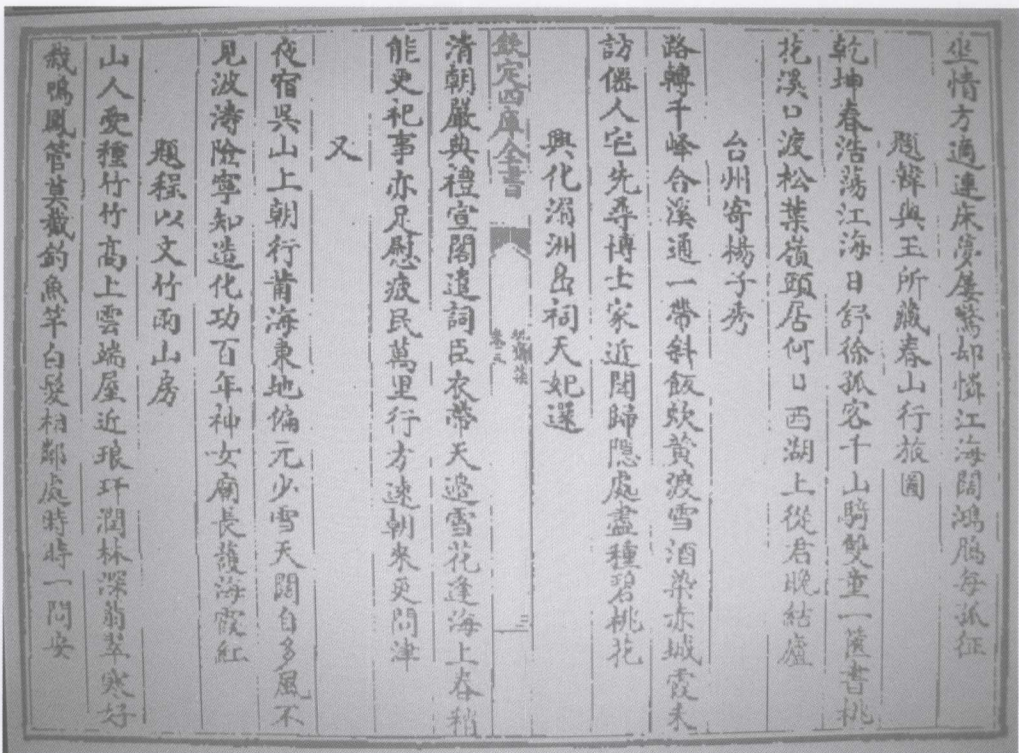 坐情方適連床夢屡驚如憐江海闊鴻鴈每孤征
題韓與玉所藏春山行旅圖
乾坤春浩蕩江海日舒徐孤客千山騎雙童一篋書桃
花溪口渡松葉嶺頭居何日西湖上從君晚結廬
台州寄楊子秀
路轉千峰合溪通一帶斜飯炊黄渡雪酒染赤城霞未
訪僊人宅先尋博士家近聞歸隱處盡種碧桃花
興化湄洲島祠天妃還
欽定四庫全書
玩齋集
卷三
清朝嚴典禮宣閣遣詞臣衣帶天邊雪花逢海上春稍
能更祀事亦足慰疲民萬里行方速朝來更問津
又
夜宿吳山上朝行莆海東地偏元少雪天闊自多風不
見波濤險寧知造化功百年神女廟長護海霞紅
題程以文竹雨山房
山人愛種竹竹高上雲端屋近琅玕潤林深翡翠寒好
裁鳴鳳管莫截釣魚竿白髮相鄰處時時一問安